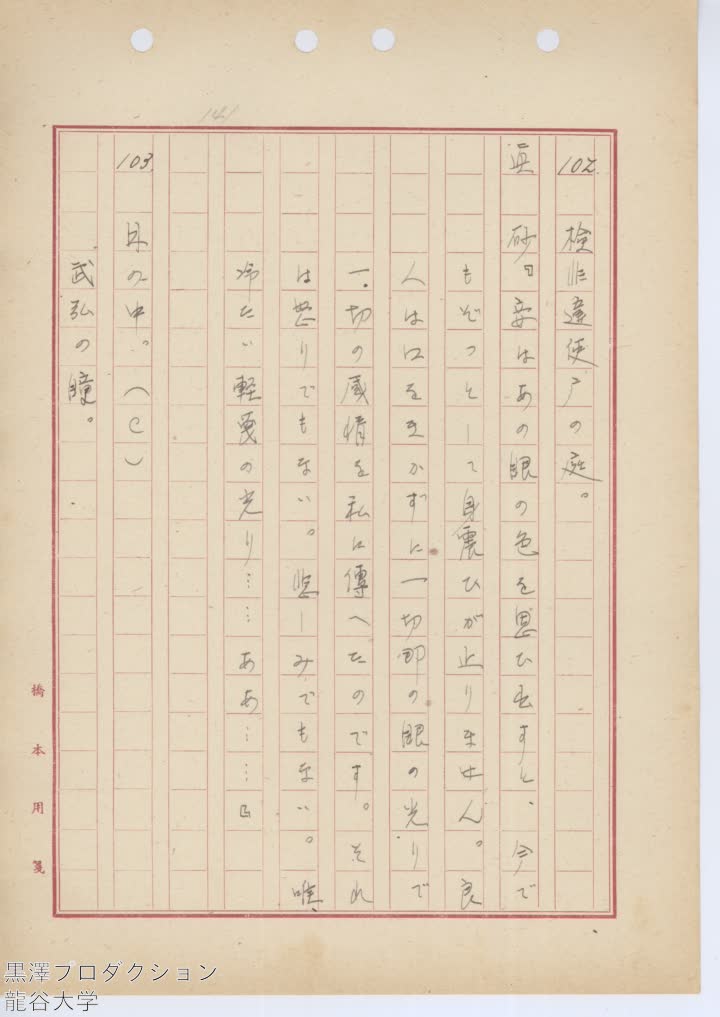 141
102. 検非違使庁の庭。
真砂「妾はあの眼の色を思ひ出すと、今で
もぞつとして身震ひが止りません。良
人は口をきかずに一切即の眼の光りで
一切の感情を私に傳へたのです。それ
は怒りでもない。悲しみでもない。唯、
冷たい軽蔑の光り……ああ……」
103. 林の中。(C)
武弘の瞳。
橋本用箋
黒澤プロダクション
龍谷大学